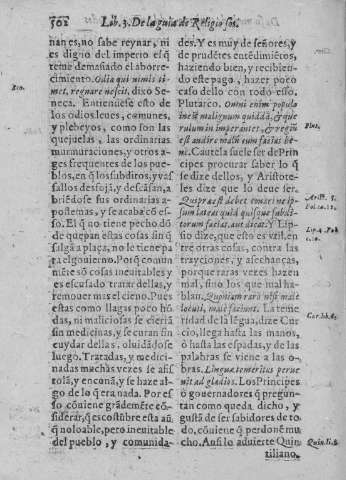 562 Lib. 3. De la guia de Religiosos.
nan es, no sabe reynar, ni
es digno del imperio el q̃
teme demasiado el aborre-
cimiento. Odia qui nimis ti-
met, regnare nescit, dixo Se-
neca. Entiendese esto de
los odios leues, comunes,
y plebeyos, como son las
quejuelas, las ordinarias
murmuraciones, y otros a-
ges frequentes de los pue-
blos, en q̃ los subditos, y va
sallos desfogã, y descãsan, a
briẽdose sus ordinarias a-
postemas, y se acaba cõ es-
so. El q̃ no tiene pecho dõ
de quepan estas cosas sin q̃
salgã a plaça, no le tiene pa
ra el gouierno. Porq̃ comun
mẽte sõ cosas ineuitables y
es escusado tratar dellas, y
remouer mas el cieno. Pues
estas como llagas poco hõ
das, ni maliciosas se cierrã
sin medicinas, y se curan sin
cuydar dellas, oluidãdose
luego. Tratadas, y medici-
nadas muchas vezes se afis
tolã, y encunã, y se haze al-
go de lo q̃ era nada. Por es
so cõuiene grãdemẽte cõ-
siderar, q̃ es costũbre esta aũ
q̃ no loable, pero ineuitable
del pueblo, y comunida-
des. Y es muy de señores, y
de prudẽtes entẽdimiẽtos,
haziendo bien, y recibien-
do este pago, hazer poco
caso dello con todo esso.
Plutarco. Omni enim populo
inest malignum quiddã, & que
rulum in imperantes, & regiũ
est audire malè cum facias be-
nè. Cautela suele ser de Prin-
cipes procurar saber lo q̃
se dize dellos, y Aristote-
les dize que lo deue ser.
y Lip-
sio dize, que esto es vtil, en
tre otras cosas, contra las
trayciones, y assechanças,
porque raras vezes hazen
mal, sino los que mal ha-
blan. Quipium rarò nisi malè
locuti, malè faciunt. La teme
ridad de la lẽgua, dize Cur
cio, llega hasta las manos,
ò hasta las espadas, y de las
palabras se viene a las o-
bras. Linguæ temeritas perue
nit ad gladios. Los Principes
ò gouernadores q̃ pregun-
tan como queda dicho, y
gustã de ser sabidores de to-
do, cõuiene q̃ perdonẽ mu
cho. Assi lo aduierte Quin
tiliano.
Plut.
Arist. 5.
Quin. li. 8.